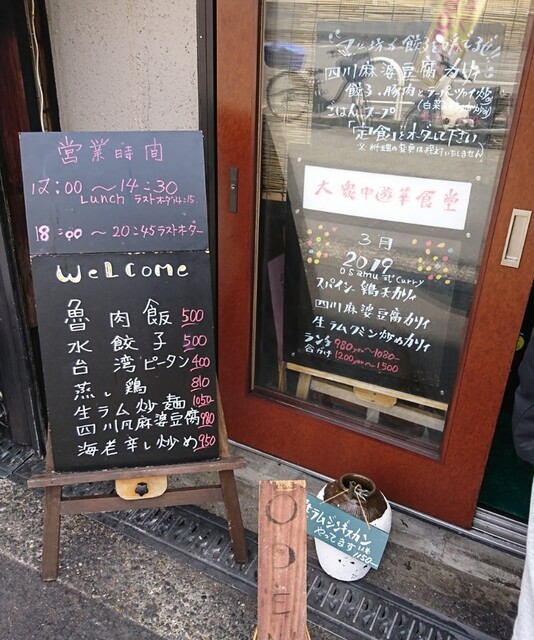 営業時間
12:00 ～ 14:30
Lunch ラストオーダー14:15
18:00 ～ 20:45 ラストオーダー
WeLcome
魯肉飯 500
水餃子 500
台湾ピータン 400
蒸し鶏 810
生ラム炒麺 1050
四川风麻婆豆腐 980
海老辛し炒め 950
四川麻婆豆腐カリィ
ごはん、スープ
「定食」とオーダー下さい
大衆中遊華食堂
3月
2019
osamu式curry
スパイシー鶏天カリィ
四川麻婆豆腐カリィ
生ラムクミン炒めカリィ
ランチ 980～1080-
合がけ 1200～1500
生ラムジンギスカン
やってます
1150-
OPEN